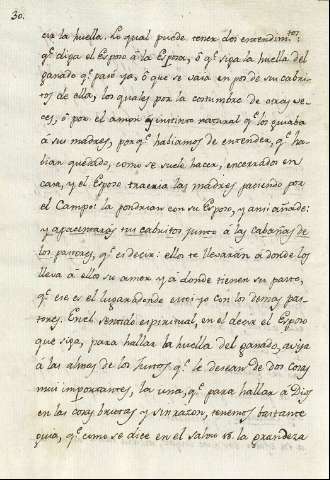 30.
cia la huella. Lo qual puede tener dos entendim.tos
q.e diga el Esposo â la Esposa, ô q.e siga la huella del
ganado q.e pasó ya, ô que se vaia en pos de sus cabri-
tos de ella, los quales por la costumbre de otras ve-
ces, ô por el amor y instinto natural q.e lo guiaba
â sus madres, porq.e habiamos de entender, q.e ha-
bian quedado, como se suele hacer, encerrados en
casa, y el Esposo traeria las madres paciendo por
el Campo: la pondrian con su Esposo, y ansi añade:
y apacentaràs tus cabritos junto â las cabañas de
los pastores, q.e es decir: ellos te llevaràn â donde los
lleva â ellos su amor y â donde tienen su pasto,
q.e ese es el lugar adonde estoi yo con los demas pas-
tores. En el sentido espiritual, en el decir el Esposo
que siga, para hallar la huella del ganado, avisa
â las almas de los Justos q.e le desean de dos cosas
mui importantes, la una, q.e para hallar a Dios
en las cosas brutas y sin razon, tenemos bastante
guia, q.e como se dice en el Salmo 18. la grandeza